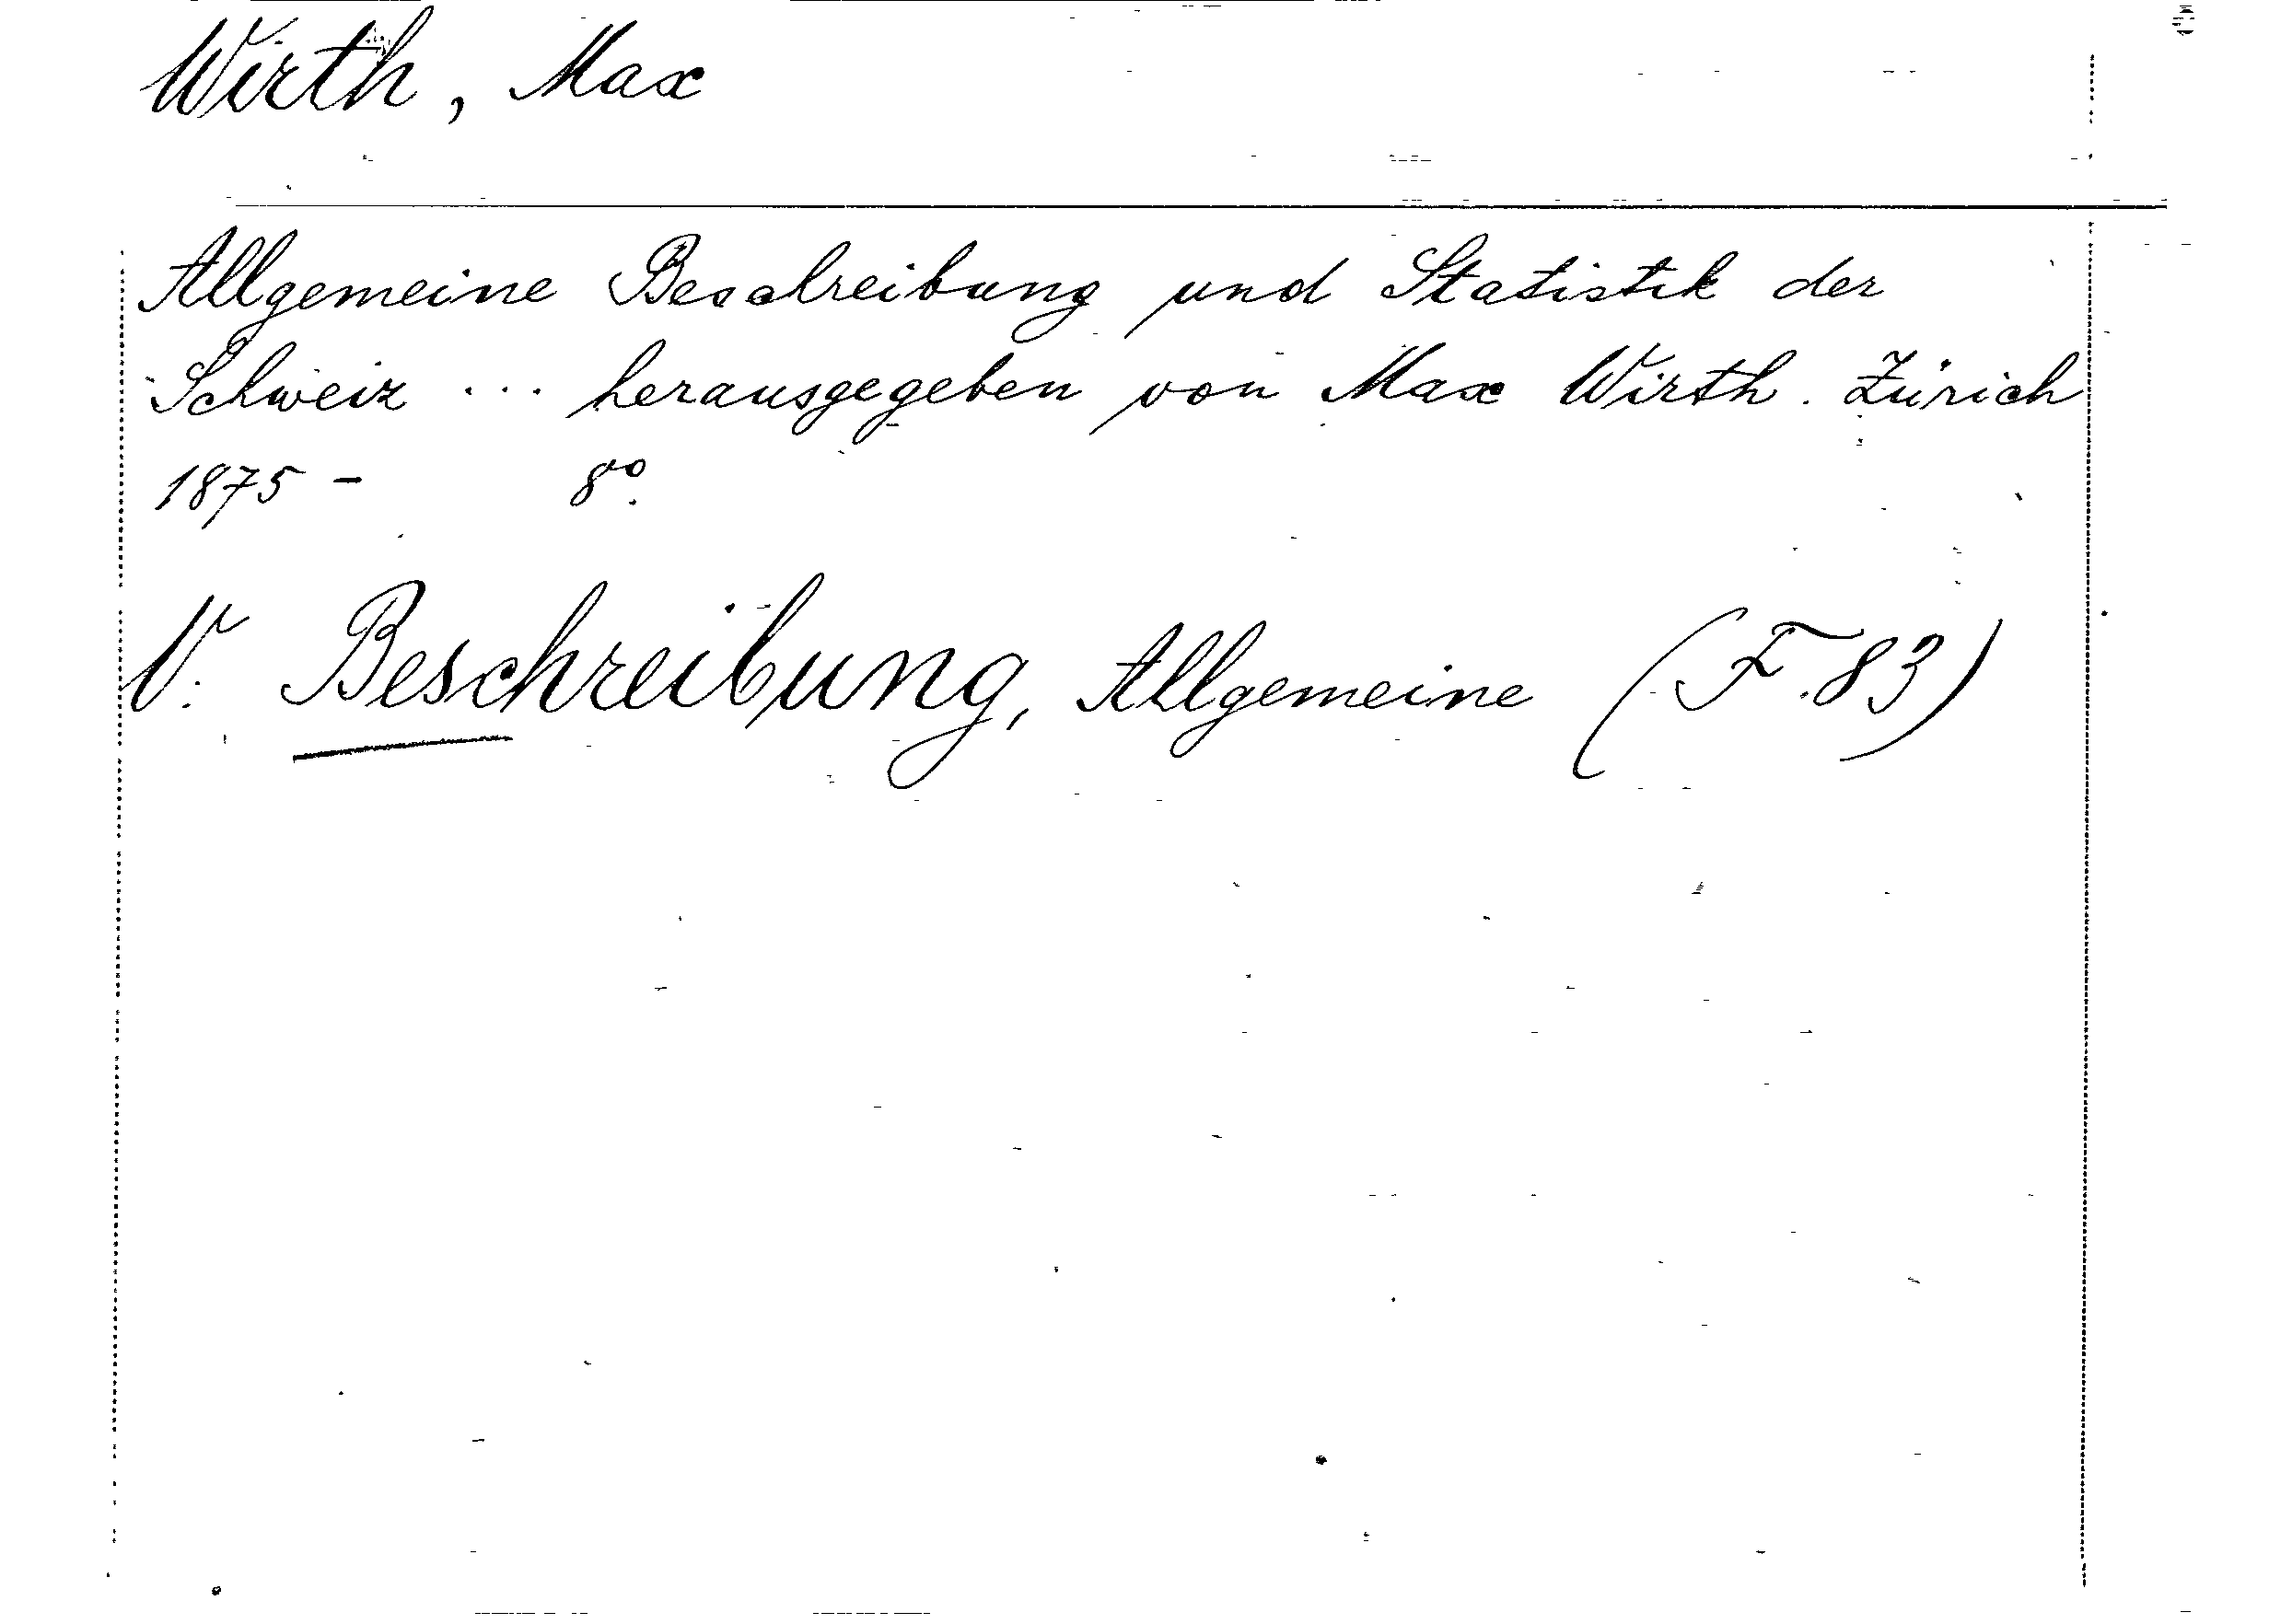 Wirth, Max
Allgemeine Beschreibung und Statistik der
Schweiz ... herausgegeben von Max Wirth. Zürich
1875 - 8º.
V. Beschreibung, Allgemeine (F. 83)